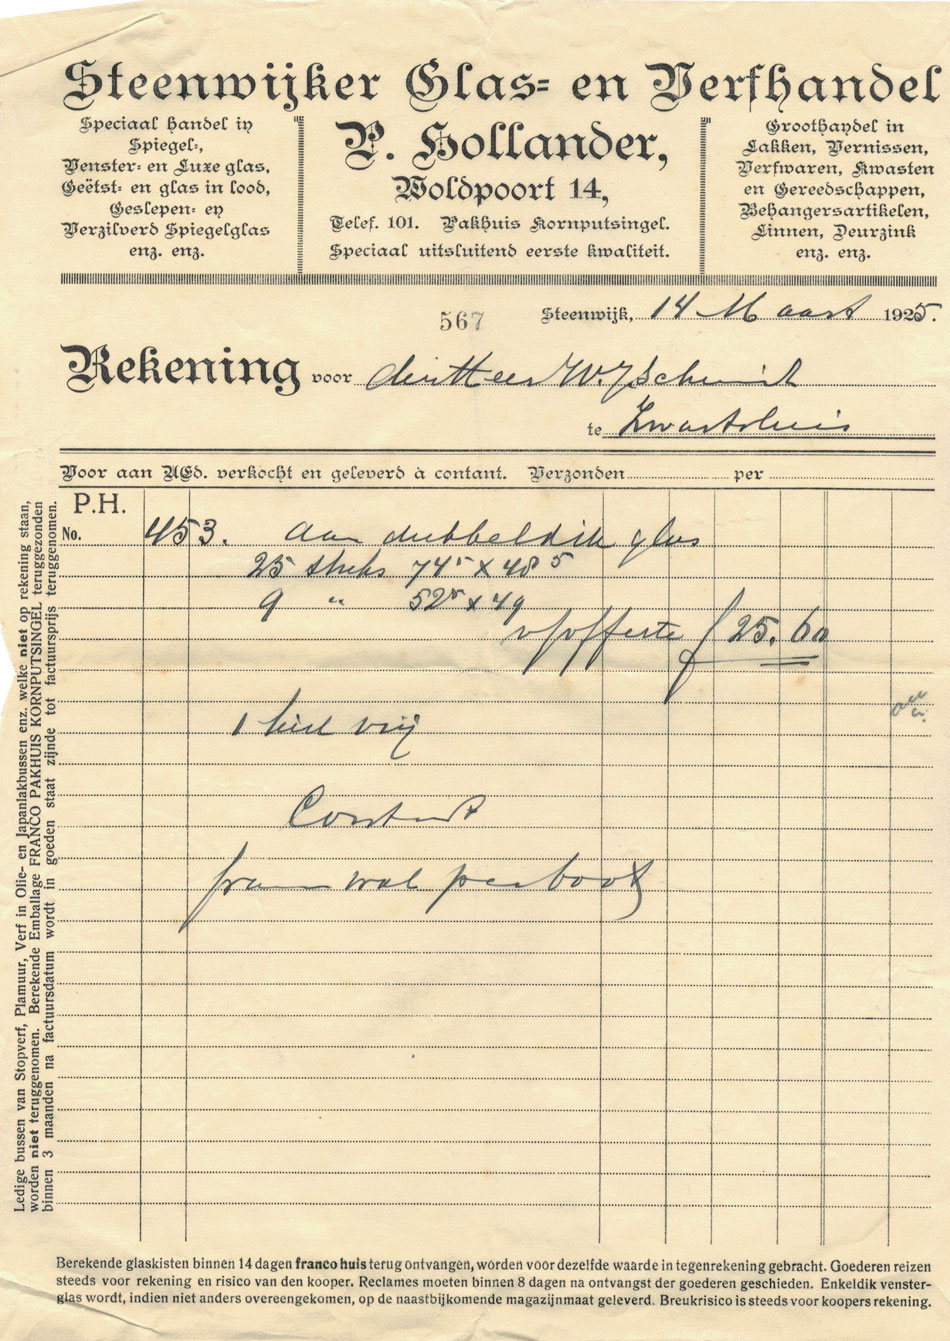 Steenwijker Glas- en Verfhandel
Speciaal handel in
Spiegel-,
Venster- en Luxe glas,
Geëtst- en glas in lood,
Geslepen- en
Verzilverd Spiegelglas
enz. enz.
P. Hollander,
Woldpoort 14,
Telef. 101. Pakhuis Kornputsingel.
Speciaal uitsluitend eerste kwaliteit.
Groothandel in
Lakken, Vernissen,
Verfwaren, Kwasten
en Gereedschappen,
Behangersartikelen,
Linnen, Deurzink
enz. enz.
567
Steenwijk, 14 Maart 1925.
Rekening voor W. J Schmidt
te Zwartsluis
Voor aan UEd. verkocht en geleverd à contant. Verzonden per
P.H.
No. 453. Aan dubbeldik glas
25 stuks 74⁵ x 48⁵
9 " 52⁵ x 49
v/offerte f 25.60
1 kist vrij
Contant
per boot
Ledige bussen van Stopverf, Plamuur, Verf in Olie- en Japanlakbussen enz. welke niet op rekening staan,
worden niet teruggenomen. Berekende Emballage FRANCO PAKHUIS KORNPUTSINGEL teruggezonden
binnen 3 maanden na factuursdatum wordt in goeden staat zijnde tot factuursprijs teruggenomen.
Berekende glaskisten binnen 14 dagen franco huis terug ontvangen, worden voor dezelfde waarde in tegenrekening gebracht. Goederen reizen
steeds voor rekening en risico van den kooper. Reclames moeten binnen 8 dagen na ontvangst der goederen geschieden. Enkeldik venster-
glas wordt, indien niet anders overeengekomen, op de naastbijkomende magazijnmaat geleverd. Breukrisico is steeds voor koopers rekening.